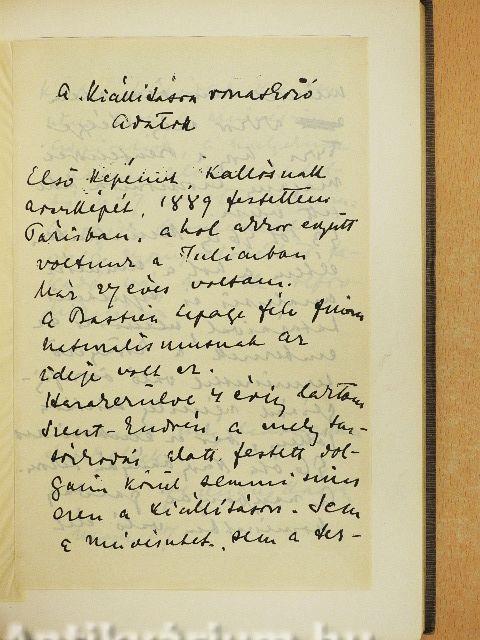 A Kiállításra vonatkozó
Adatok
Első képemet, Kallósnak
arcképét, 1889 festettem
Párisban, a hol akkor együtt
voltunk a Julianban
Már 27 éves voltam.
A Bastien Lepage féle finom
naturalismusnak az
ideje volt ez.
Hazakerülve 4 évig laktam
Szent-Endrén, a mely tar-
tózkodás alatt festett dol-
gaim közül semmi sincs
ezen a kiállításon. Sem
a művészetet, sem a ter-
Antikvárium.hu